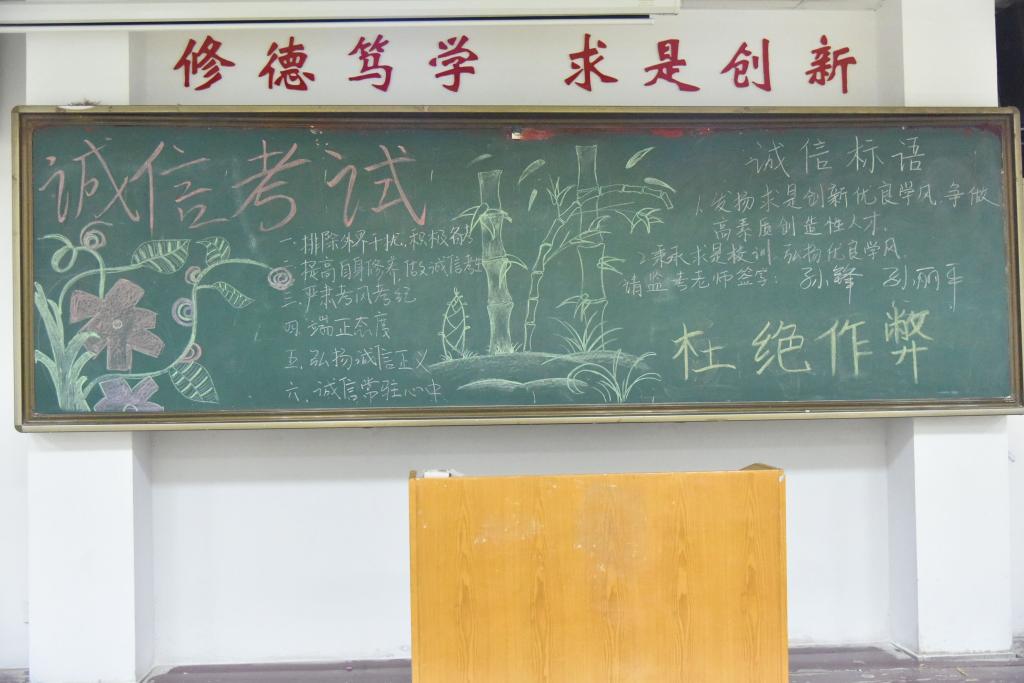 修德笃学 求是创新
诚信考试
一、排除外界干扰,积极备考
二、提高自身修养,做诚信考生
三、严肃考风考纪
四、端正态度
五、弘扬诚信正义
六、诚信常驻心中
诚信标语
1、发扬求是创新优良学风,争做
高素质创造性人才.
2、秉承求是校训,弘扬优良学风.
请监考老师签字: 孙锋 孙丽平
杜绝作弊